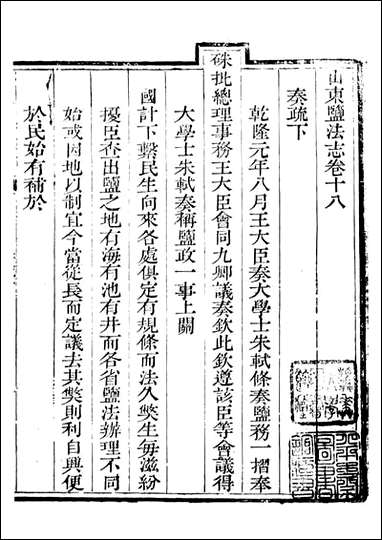 山東鹽法志卷十八
奏疏下
乾隆元年八月王大臣奏大學士朱軾條奏鹽務一摺奉
硃批總理事務王大臣會同九卿議奏欽此欽遵該臣等會議得
大學士朱軾奏稱鹽政一事上關
國計下繫民生向來各處俱定有規條而法久獘生每滋紛
擾臣查出鹽之地有海有池有井而各省鹽法辦理不同
始或因地以制宜今當從長而定議去其獘則利自興便
於民始有補於